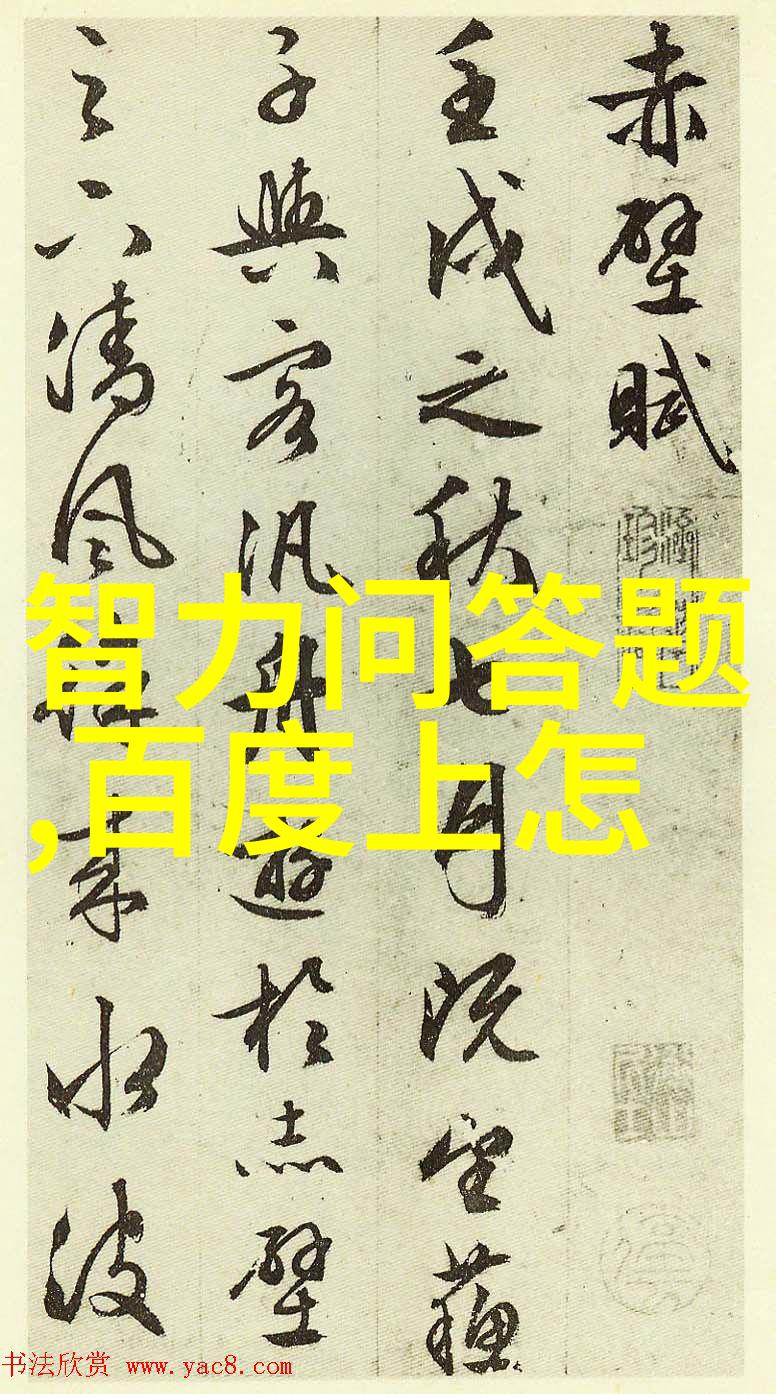 赤壁賦
壬戌之秋七月既望蘇
子與客汎舟遊於赤壁
之下清風徐來水波
智力问答题
,百度上怎
书法欣赏 www.yac8.com